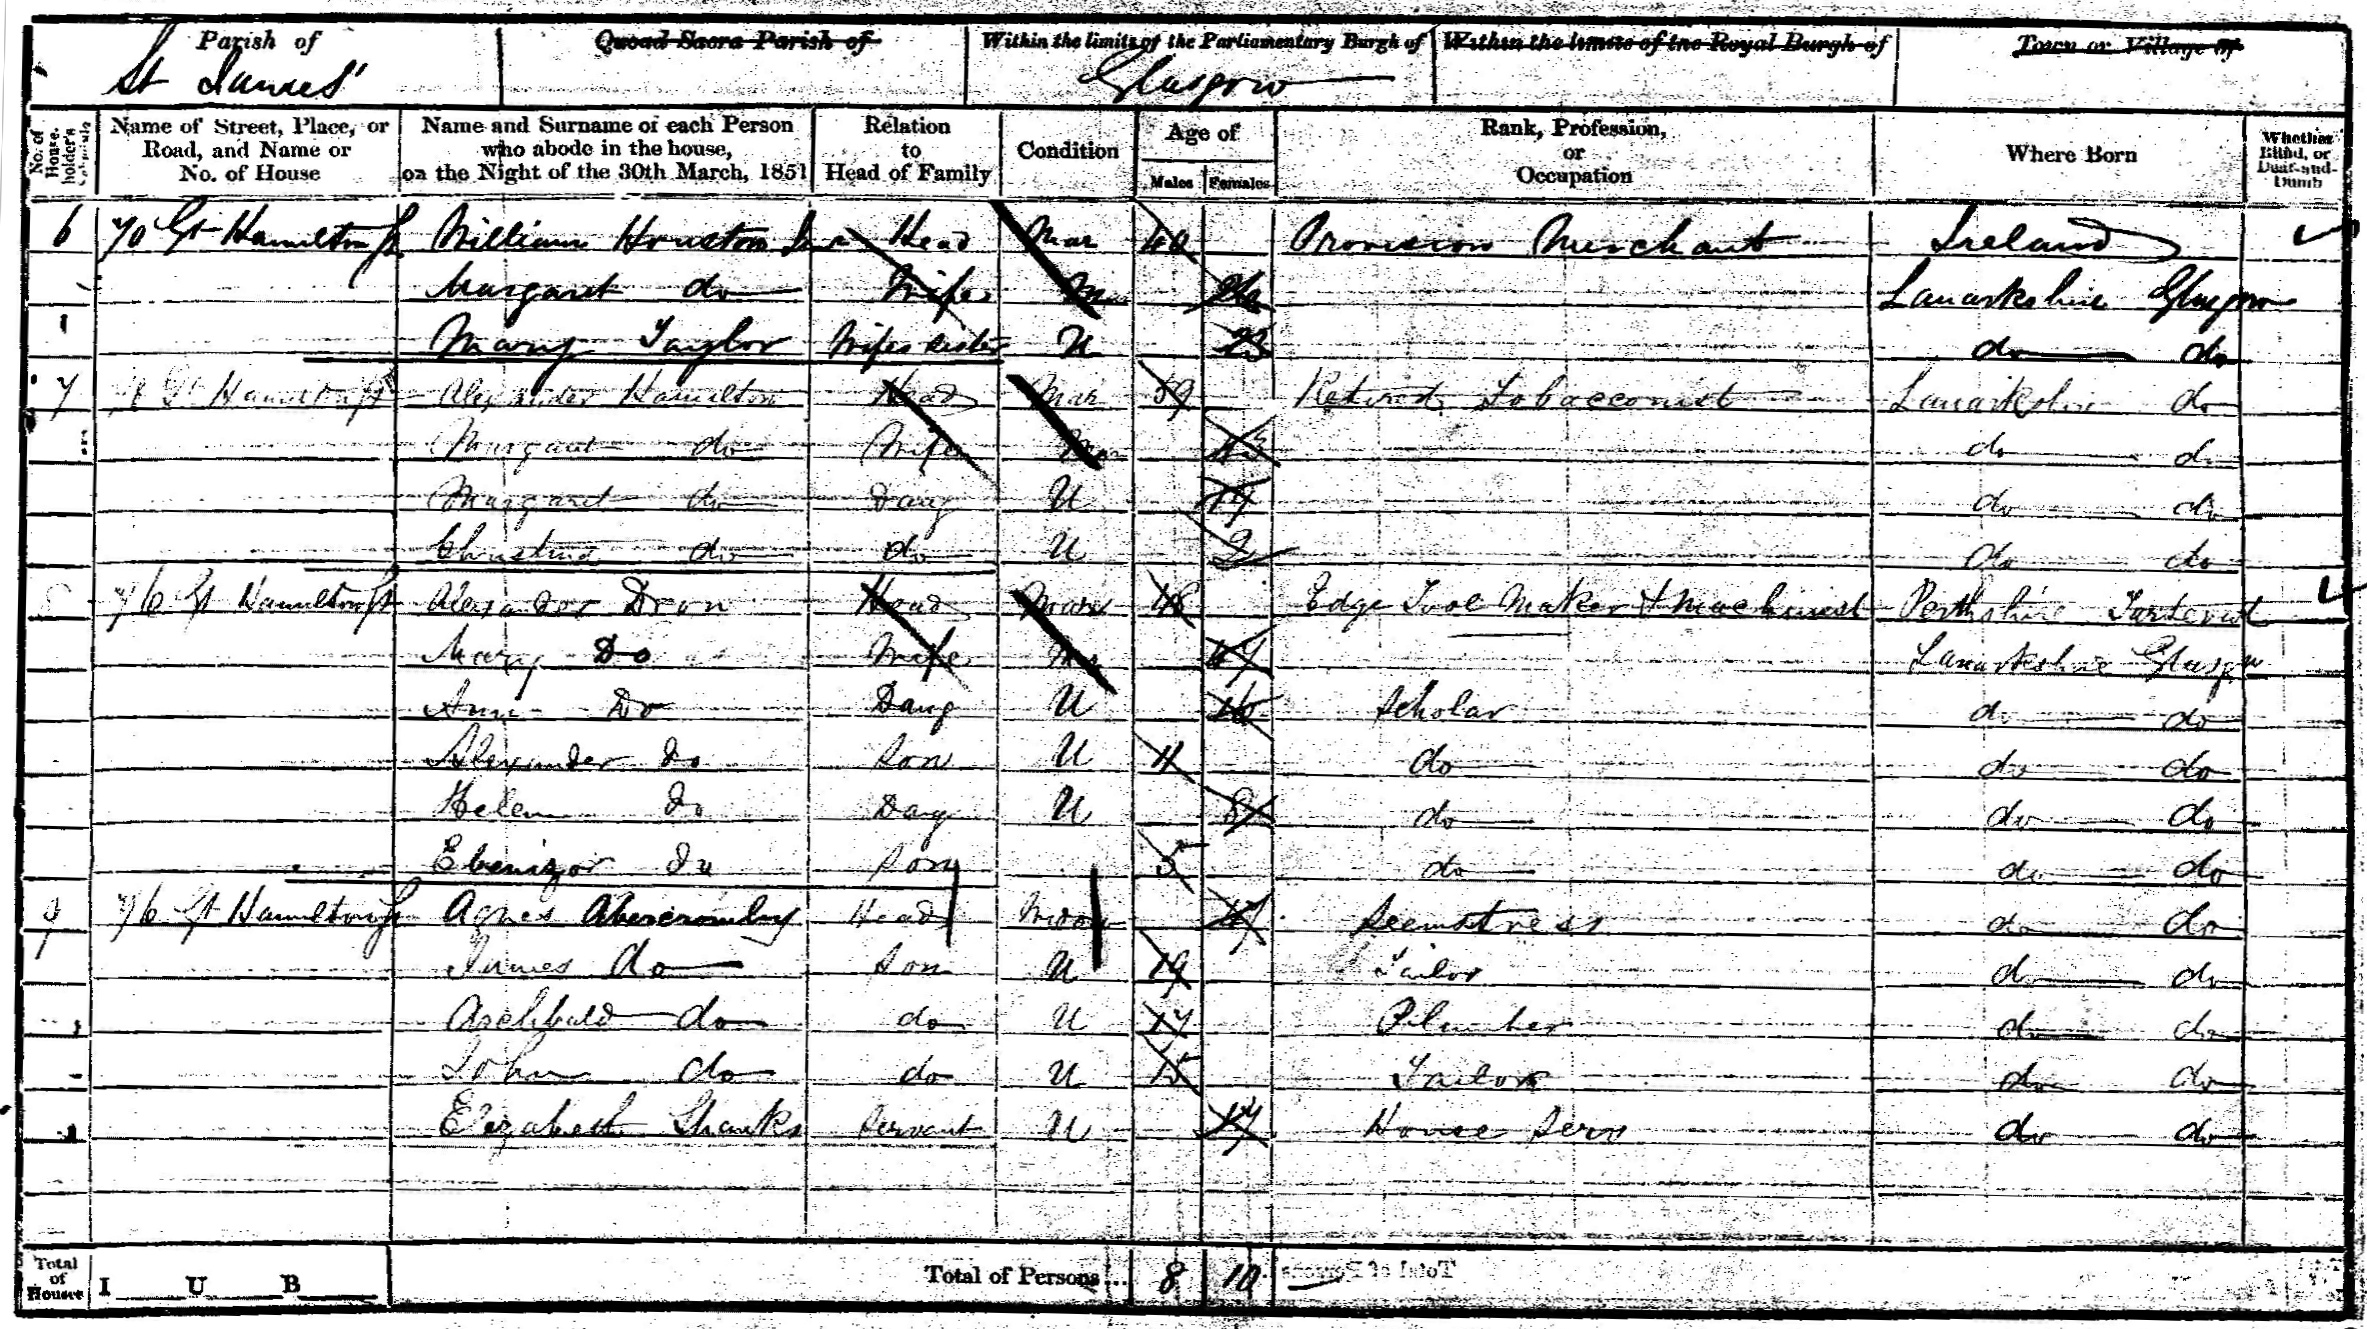 Parish of Quoad Sacra Parish of Within the limits of the Parliamentary Burgh of Within the limits of the Royal Burgh of Town or Village of
St James' Glasgow
No. of House-holder's Schedule Name of Street, Place, or Road, and Name or No. of House Name and Surname of each Person who abode in the house, on the Night of the 30th March, 1851 Relation to Head of Family Condition Age of Males Females Rank, Profession, or Occupation Where Born Whether Blind, or Deaf-and-Dumb
6 70 Gt Hamilton St William Houston Head Mar 40 Provision Merchant Ireland
Margaret do Wife M 26 Lanarkshire Glasgow
Mary Taylor Wifes sister U 23 do do
7 Gt Hamilton St Alexander Hamilton Head Mar 59 Retired Tobacconist Lanarkshire do
Margaret do Wife Mar 43 do do
Margaret do Daug U 17 do do
Christina do do U 2 do do
76 Gt Hamilton St Alexander Dron Head Mar 48 Edge Tool Maker & Machinist Perthshire
Mary Do Wife Mar 47 Lanarkshire Glasgow
Ann Do Daug U 16 Scholar do do
Alexander Do Son U 11 do do do
Helen Do Daug U 8 do do do
Ebenizor Do Son 5 do do do
9 76 Gt Hamilton St Agnes Abercromby Head Widow 47 Seemstress do do
James do Son U 19 Tailor do do
Archibald do do U 17 Plumber do do
John do do U 15 Tailor do do
Elizabeth Shanks Servant U 17 House Serv do do
Total of Houses I U B Total of Persons... 8 10